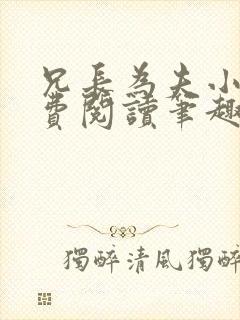 兄長為夫小
費閱讀筆趣
獨醉清風獨醉